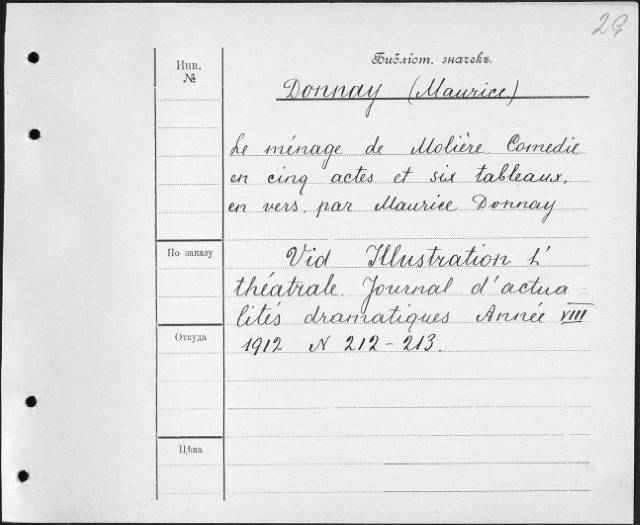 29
Инв.
№
Библіот. значекъ.
Donnay (Maurice)
Le ménage de Molière. Comedie
en cinq actes et six tableaux,
en vers, par Maurice Donnay
По заказу
Vid Illustration L'
théatrale. Journal d'actua
lités dramatiques Année VIII
Откуда
1912 N 212-213.
Цѣна